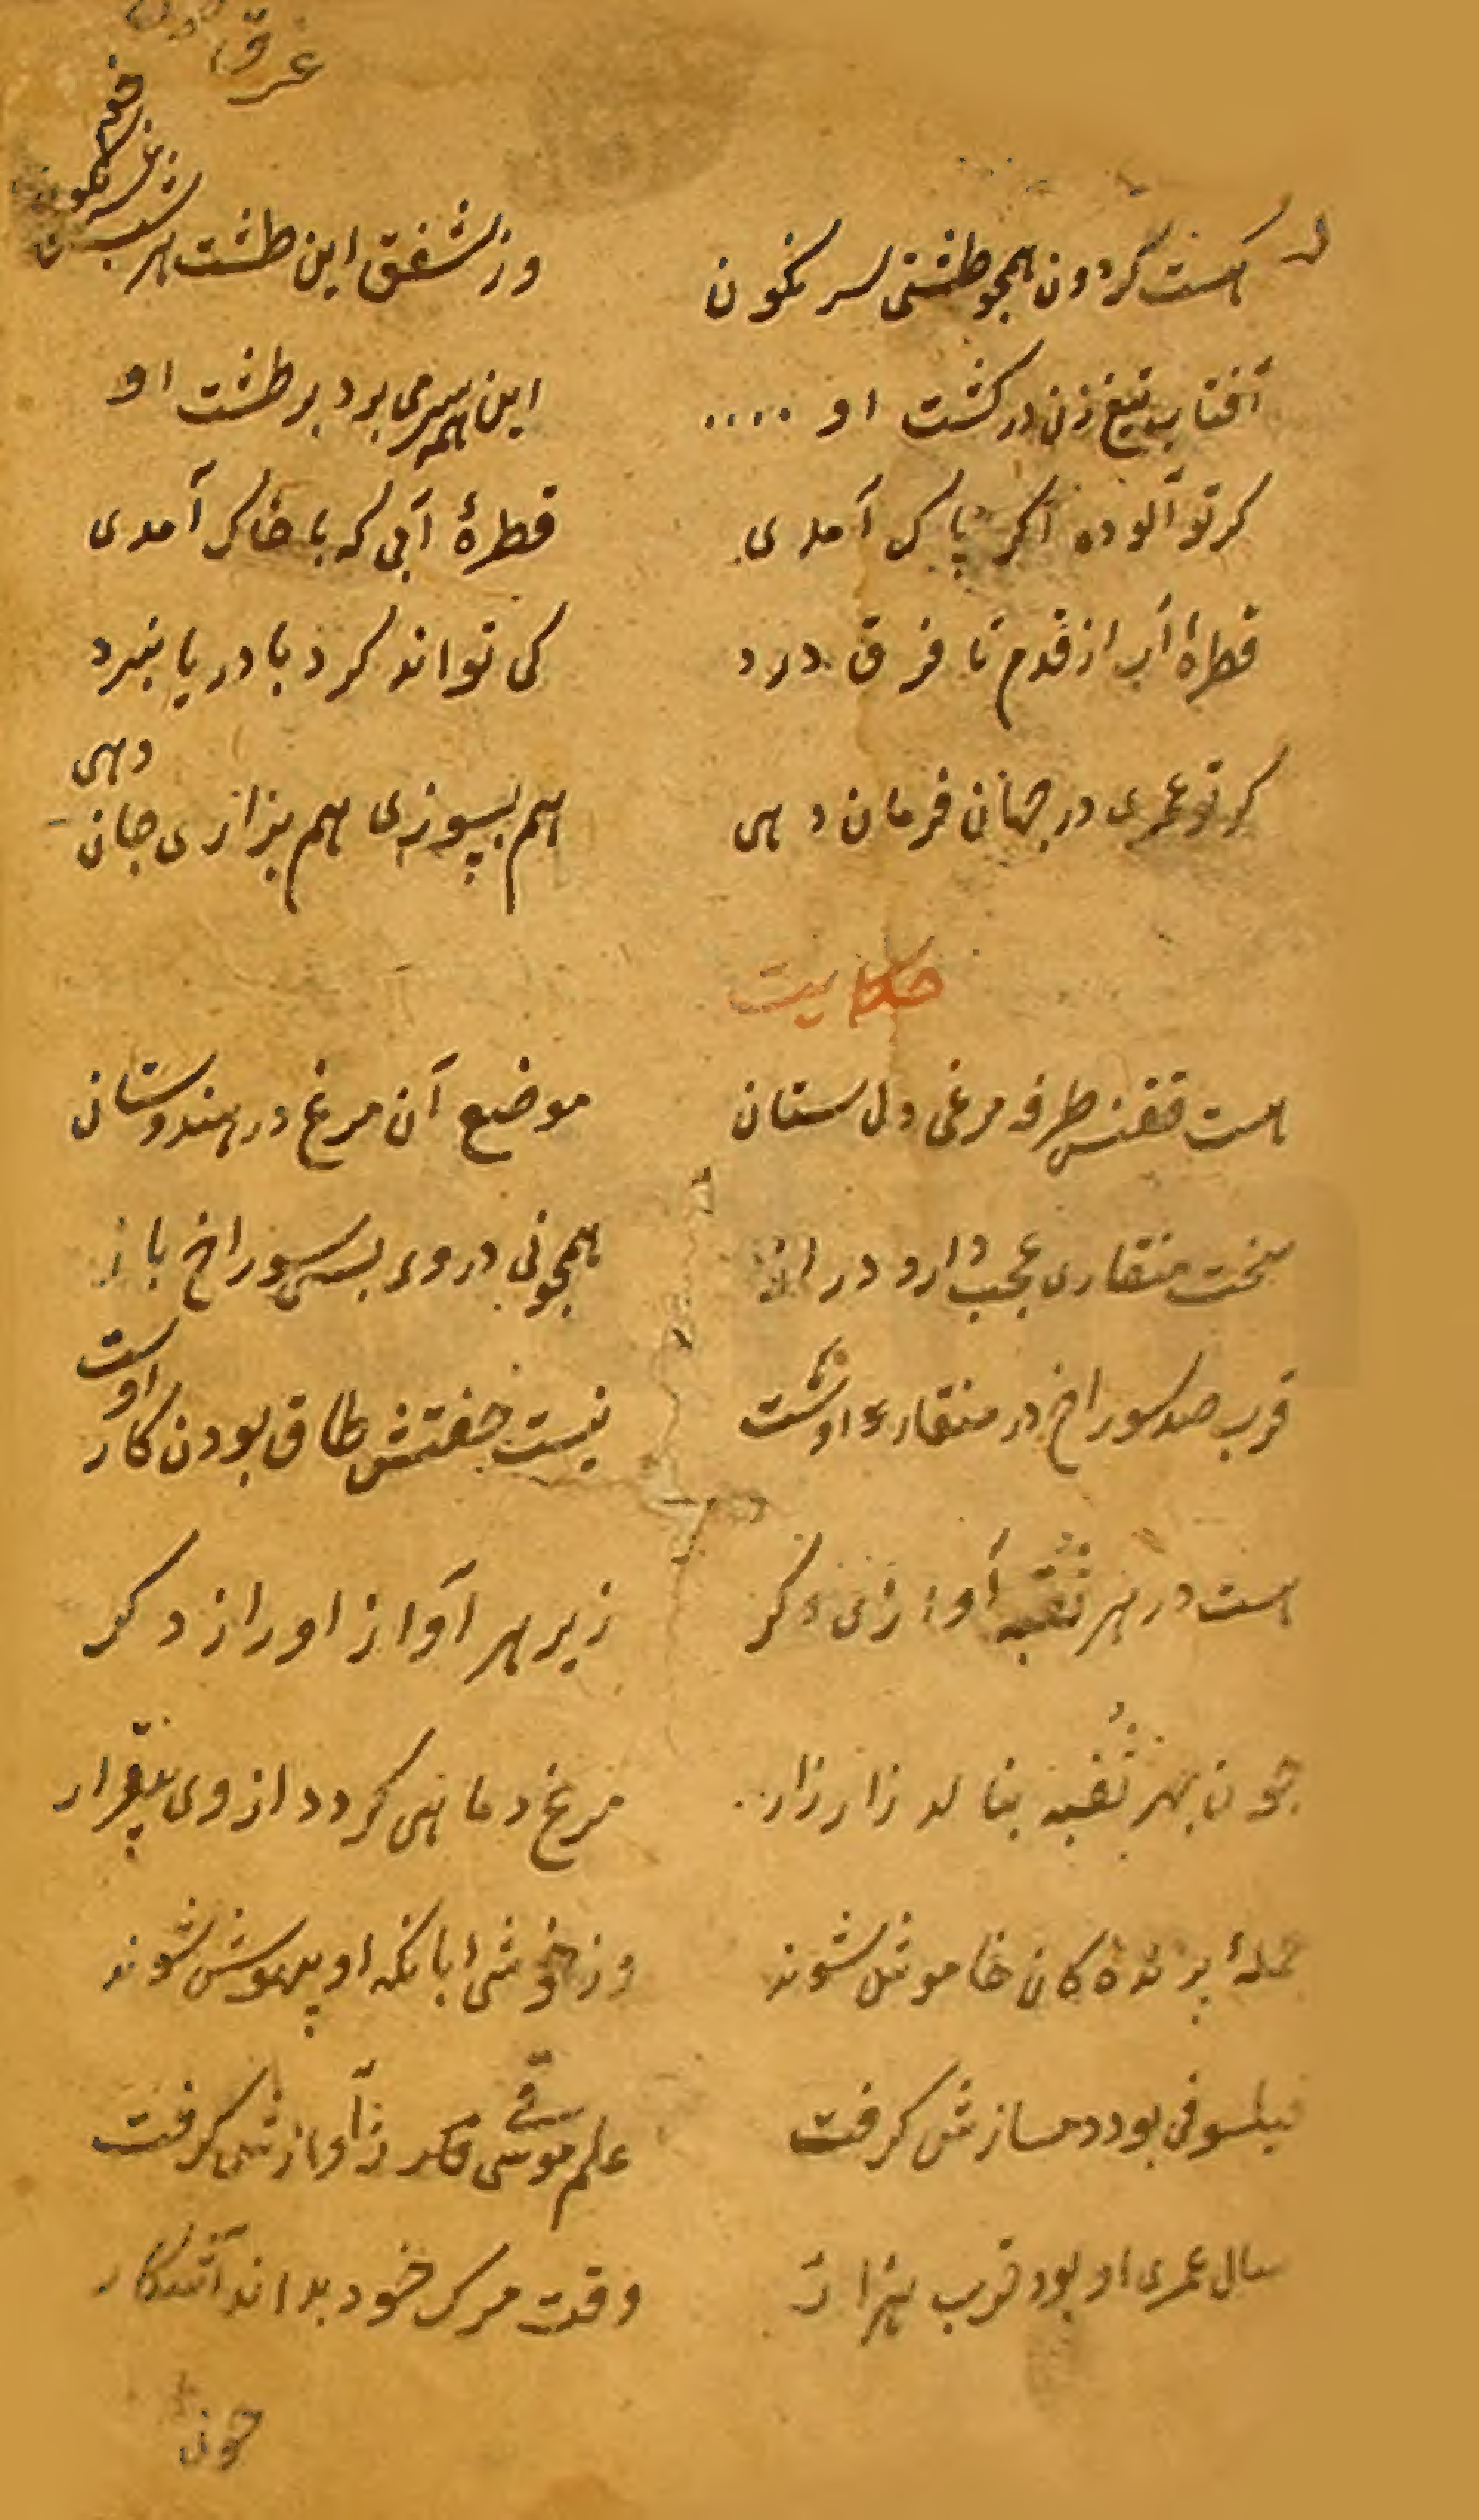 غرق
هست کردون همجو طشتی سر نکون
وز شفق این طشت هر شب غرق خون
آفتاب تیغ زن در کشت او ....
این همه سر می برد بر طشت او
کر تو آلوده اکر پاک آمدی
قطرهٔ آبی که با خاک آمدی
قطرهٔ آب از قدم تا فرق درد
کی تواند کرد با دریا نبرد
کر تو عمری در جهان فرمان دهی
هم بسوزی هم بزاری جان دهی
حکایت
هست ققنس طرفه مرغی دل ستان
موضع آن مرغ در هندوستان
سخت منقاری عجب دارد دراز
همچو نی در وی بسی سوراخ باز
قرب صد سوراخ در منقار اوست
نیست جفتش طاق بودن کار اوست
هست در هر ثقبه آوازی دکر
زیر هر آواز او راز دکر
چون بهر ثقبه بنالد زار زار
مرغ و ماهی کردد از وی بیقرار
جملهٔ پرندهٔ کان خاموش شوند
وز خوشی بانک او بیهوش شوند
فیلسوفی بود دمسازش کرفت
علم موسقی مکر ز آوازش کرفت
سال عمری او بود قرب هزار
وقت مرک خود بداند آشکار
چون